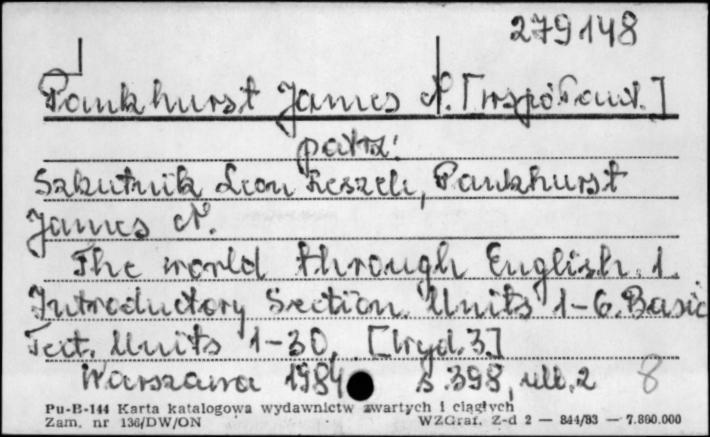 279148
Pankhurst James N. [współaut.]
patrz:
Szkutnik Leon Leszek, Pankhurst
James N.
The world through English. 1.
Introductory Section. Units 1-6. Basic
Text. Units 1-30. [Wyd. 3]
Warszawa 1984 s. 398, nlb. 2 8
Pu-B-144 Karta katalogowa wydawnictw zwartych i ciągłych
Zam. nr 136/DW/ON WZGraf. Z-d 2 — 844/83 — 7.860.000